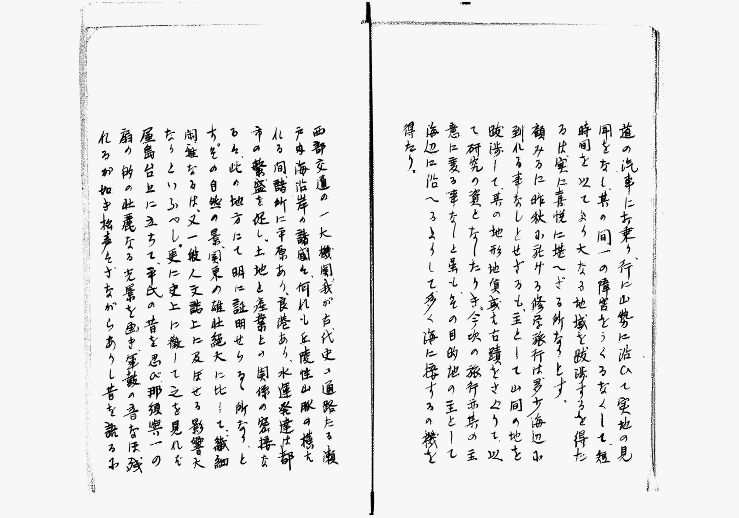 道の汽車にお乗り、行に山勢に沿ひて実地の見
聞をなし、其の間一の障害をうくるなくして、短
時間を以てより大なる地域を跋渉するを得た
るは実に喜悦に堪へざる所なりとす。
顧みるに昨秋に於ける修学旅行は多少海辺に
到れる事なしとせざるも、主として山間の地を
跋渉して、其の地形地質或は古蹟をさぐりて、以
て研究の資となしたりき、今次の旅行亦其の主
意に変る事なしと雖も、その目的地の主として
海辺に沿へるよりして多く海に接するの機を
得たり。
西部交通の一大機関、我が古代史の通路たる瀬
戸内海沿岸の諸国は何れも丘陵性山脈の横は
れる間諸所に平原あり、良港あり、水運発達は都
市の繁盛を促し、土地と産業との関係の密接な
るは、此の地方にて明に証明せらるゝ所なり、と
もその自然の景、関東の雄壮絶大に比して、繊細
閑雅なるは又一般人文誌上に及ぼせる影響大
なりといふべし。更に史上に徴して之を見れば
屋島台上に立ちて、平氏の昔を忍び那須与一の
扇の的の壮麗なる光景を画き軍鼓の音なほ残
れるが如き松声をさながらありし昔を語るに